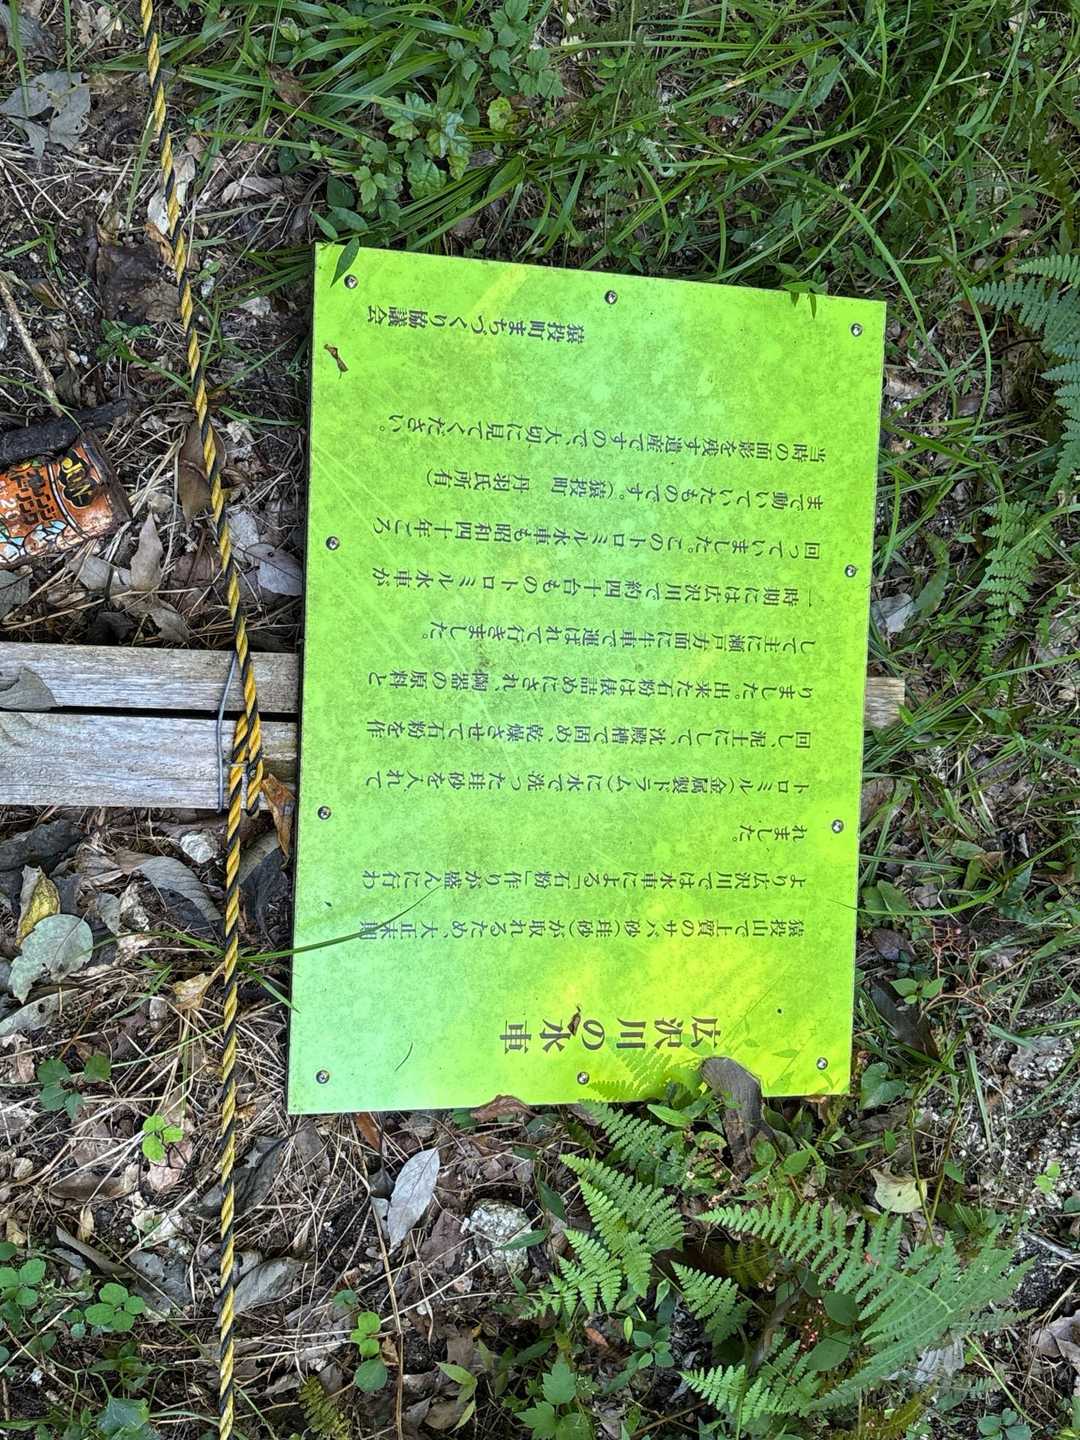 広沢川の水車
猿投山で上質のサバ砂（珪砂）が取れるため、大正末期
より広沢川では水車による「石粉」作りが盛んに行わ
れました。
トロミル（金属製ドラム）に水で洗った珪砂を入れて
回し、泥土にして、沈殿槽で固め、乾燥させて石粉を作
りました。出来た石粉は俵詰めにされ、陶器の原料と
して主に瀬戸方面に牛車で運ばれて行きました。
一時期には広沢川で約四十台ものトロミル水車が
回っていました。このトロミル水車も昭和四十年ころ
まで動いていたものです。（猿投町　丹羽氏所有）
当時の面影を残す遺産ですので、大切に見てください。
猿投町まちづくり協議会